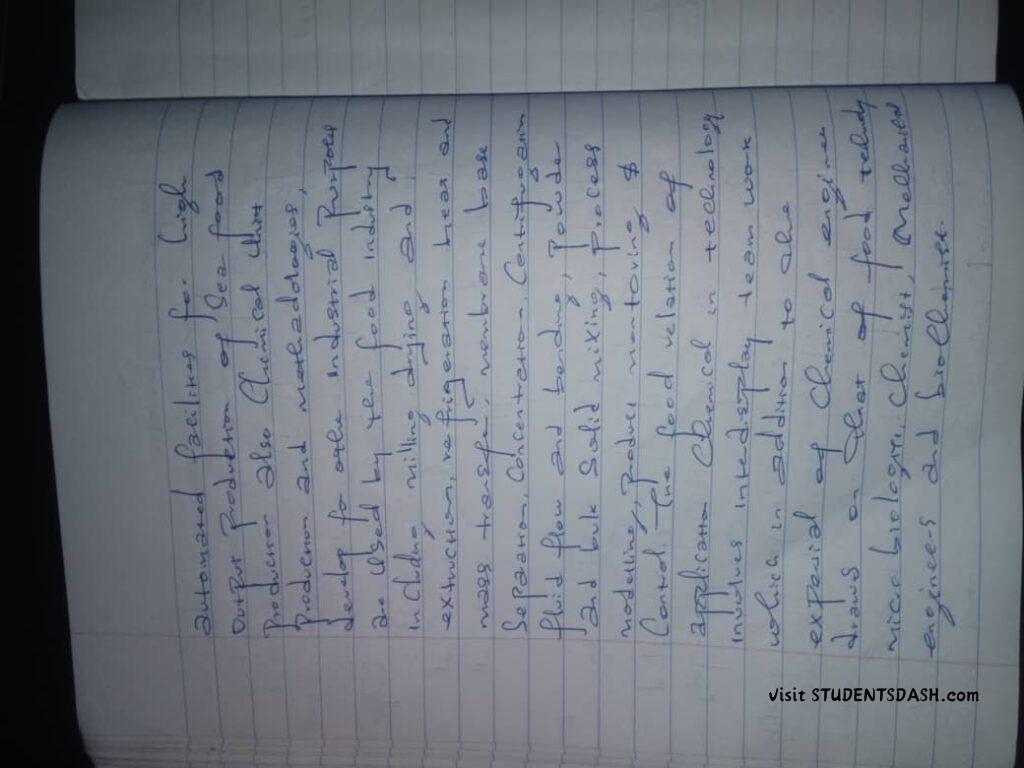 automated facilities for high
Output Production of Sea food
Production also Chemical Unit
Production and methaddologies,
Develop for other Industrial Purpose
are Used by the food Industry
including milling drying and
extruction, refrigeration heat and
mass transfer, membrane base
Separation, Concentration, Centrifugation
fluid flow and bending, Powder
and bulk Solid mixing, Process
modelling, Product monitoring &
Control. The food relation of
application Chemical in technology
involves interdisplay team work
which in addition to the
of Chemical engineer
draws on that of food
micro biologist, Chemist, Mechanical
engineers and biochemist.
Visit STUDENTSDASH.com